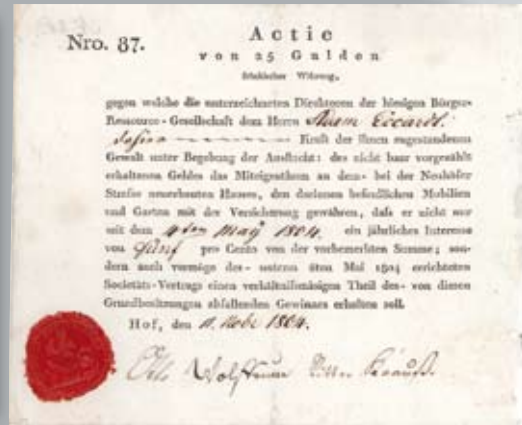 Nro. 87.
Actie
von 25 Gulden
fränkischer Währung,
gegen welche die unterzeichneten Direktoren der hiesigen Bürger-
Ressource-Gesellschaft dem Herrn Eccardt
Kraft der ihnen zugestandenen
Gewalt unter Begebung der Ausflucht: des nicht baar vorgezählt
erhaltenen Geldes das Miteigenthum an dem bei der Neuhöfer
Strasse neuerbauten Hauses, den darinnen befindlichen Mobilien
und Garten mit der Versicherung gewähren, daß er nicht nur
seit dem 4ten May 1804. ein jährliches Interesse
von Fünf pro Cento von der vorbemerkten Summe; son-
dern auch vermöge des unterm 8ten Mai 1804 errichteten
Societäts-Vertrags einen verhältnißmäsigen Theil des von diesen
Grundbesitzungen abfallenden Gewinnes erhalten soll.
Hof, den 1804.